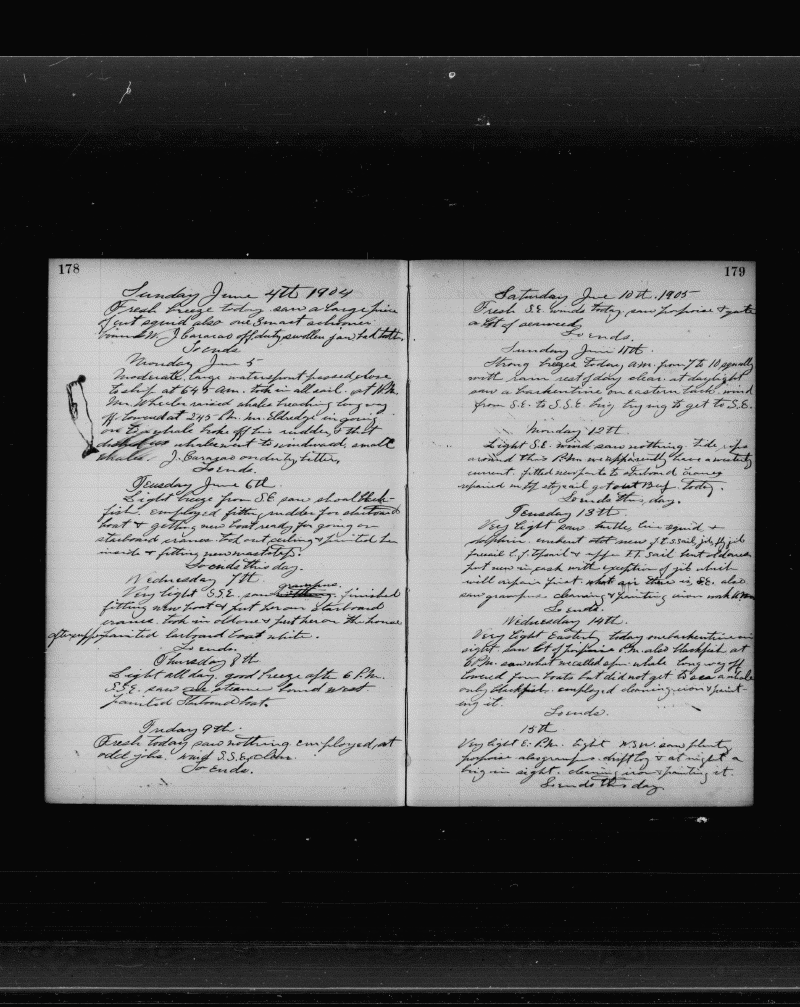 178
Sunday June 4th 1904
Fresh breeze today saw a large piece
of cut squid also one 3 mast schooner
bound W. J. Caracao off duty swollen jaw, bad tooth.
So ends
Monday June 5
Moderate, large waterspout passed close
to ship at 6 4 5 am. took in all sail. at
Mr. Wheeler raised whale breaching long way
off lowered at 2 4 5 P.M. Mr. Eldredge in going
on to a whale broke off his rudder, & that
whales went to windward, small
whales. J. Caracao on duty, better,
So ends.
Tuesday June 6th
Light breeze from S.E. saw shoal black-
fish. employed fitting rudder for starboard
boat & getting new boat ready for going on
starboard cranes. Took out ceiling & painted her
inside & fitting new mast step.
So ends this day.
Wednesday 7th
grampus.
Very light S.S.E. saw nothing, finished
fitting new boat & put her on starboard
cranes. took in old one & put her on the house
after supper painted larboard boat white.
So ends.
Thursday 8th
Light all day. good breeze after 6 P.M.
S.S.E. saw one steamer bound west
painted Starboard boat.
Friday 9th.
Fresh today saw nothing employed at
odd jobs. wind S.S.E.
So Ends.
179
Saturday June 10th. 1905
Fresh S.E. winds today, saw porpoise & quite
a lot of seaweed
So ends.
Sunday June 11th.
Strong breeze today, a.m. from 7 to 10 squally
with rain rest of day clear. at daylight
saw a barkentine on eastern tack. wind
from S.E. to S.S.E. trying to get to S.E.
Monday 12th
Light S.E. wind saw nothing tide rips
around this P.M. we apparently have a westerly
current. fitted new to starboard
repaired staysail got out today.
So ends this day.
Tuesday 13th
Very light saw turtle, live squid &
dolphin. unbent old new
sail bent old ones
put new in cask with exception of jib which
will repair first. what air there is, S.E. also
saw grampus. cleaning & painting iron work
So ends.
Wednesday 14th.
Very light Easterly today one barkentine in
sight, saw lot of porpoise P.M. also blackfish at
6 P.M. saw what we called sperm whale long way off
lowered four boats but did not get to see a whale
only blackfish. employed cleaning iron & paint-
ing it.
So ends.
15th
Very light E. P.M. light W.S.W. saw plenty
porpoise also grampus. driftlog & at night a
brig in sight. cleaning iron & painting it.
So ends this day.